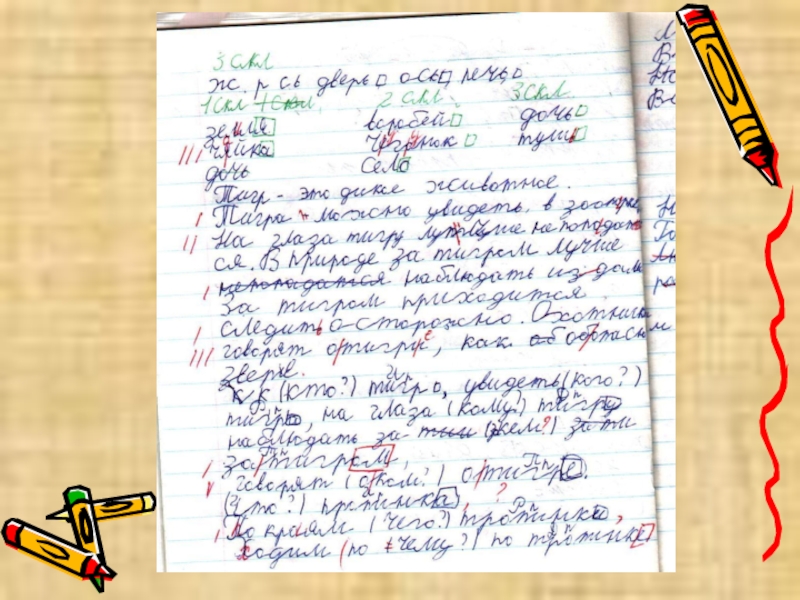 3 скл
ж. р сь дверь ось печь
1 скл 1 скл. 2 скл. 3 скл.
земля воробей дочь
чайка тушь
дочь село
Тигр - это дикое животное.
Тигра можно увидеть в
На глаза тигру лучше не попадать
ся. В природе за тигром лучше
непопадатся наблюдать из дали
За тигром приходится
следить осторожно. Охотники
говорят отигре, как об опасном
звере.
(кто?) тигр, увидеть (кого?)
тигра, на глаза (кому?) тигру
наблюдать за (кем?) за ти
за тигром,
говорят (оком?) отигре.
(что?) тропинка,
По краям (чего?) тропинки,
ходим (по чему?) по тропинке